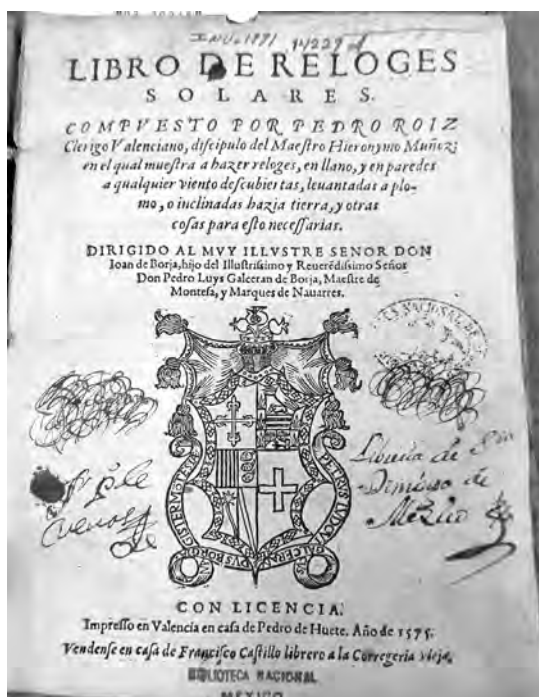 INV. 1891 14229
LIBRO DE RELOGES
SOLARES.
COMPVESTO POR PEDRO ROIZ
Clerigo Valenciano, diſcipulo del Maeſtro Hieronymo Muñoz;
en el qual mueſtra a hazer reloges, en llano, y en paredes
a qualquier viento deſcubiertas, leuantadas a plo-
mo, o inclinadas hazia tierra, y otras
coſas para eſto neceſſarias.
DIRIGIDO AL MVY ILLVSTRE SENOR DON
Ioan de Borja, hijo del Illuſtriſsimo y Reuerēdiſsimo Señor
Don Pedro Luys Galceran de Borja, Maeſtre de
Monteſa, y Marques de Nauarres.
NACIONAL
PETRVS LVDOV
Libreria de Sto
Domingo de
Mexico
CON LICENCIA.
Impreſſo en Valencia en caſa de Pedro de Huete. Año de 1575.
Vendenſe en caſa de Franciſco Caſtillo librero a la Corregeria vieja.
BIBLIOTECA NACIONAL
MEXICO